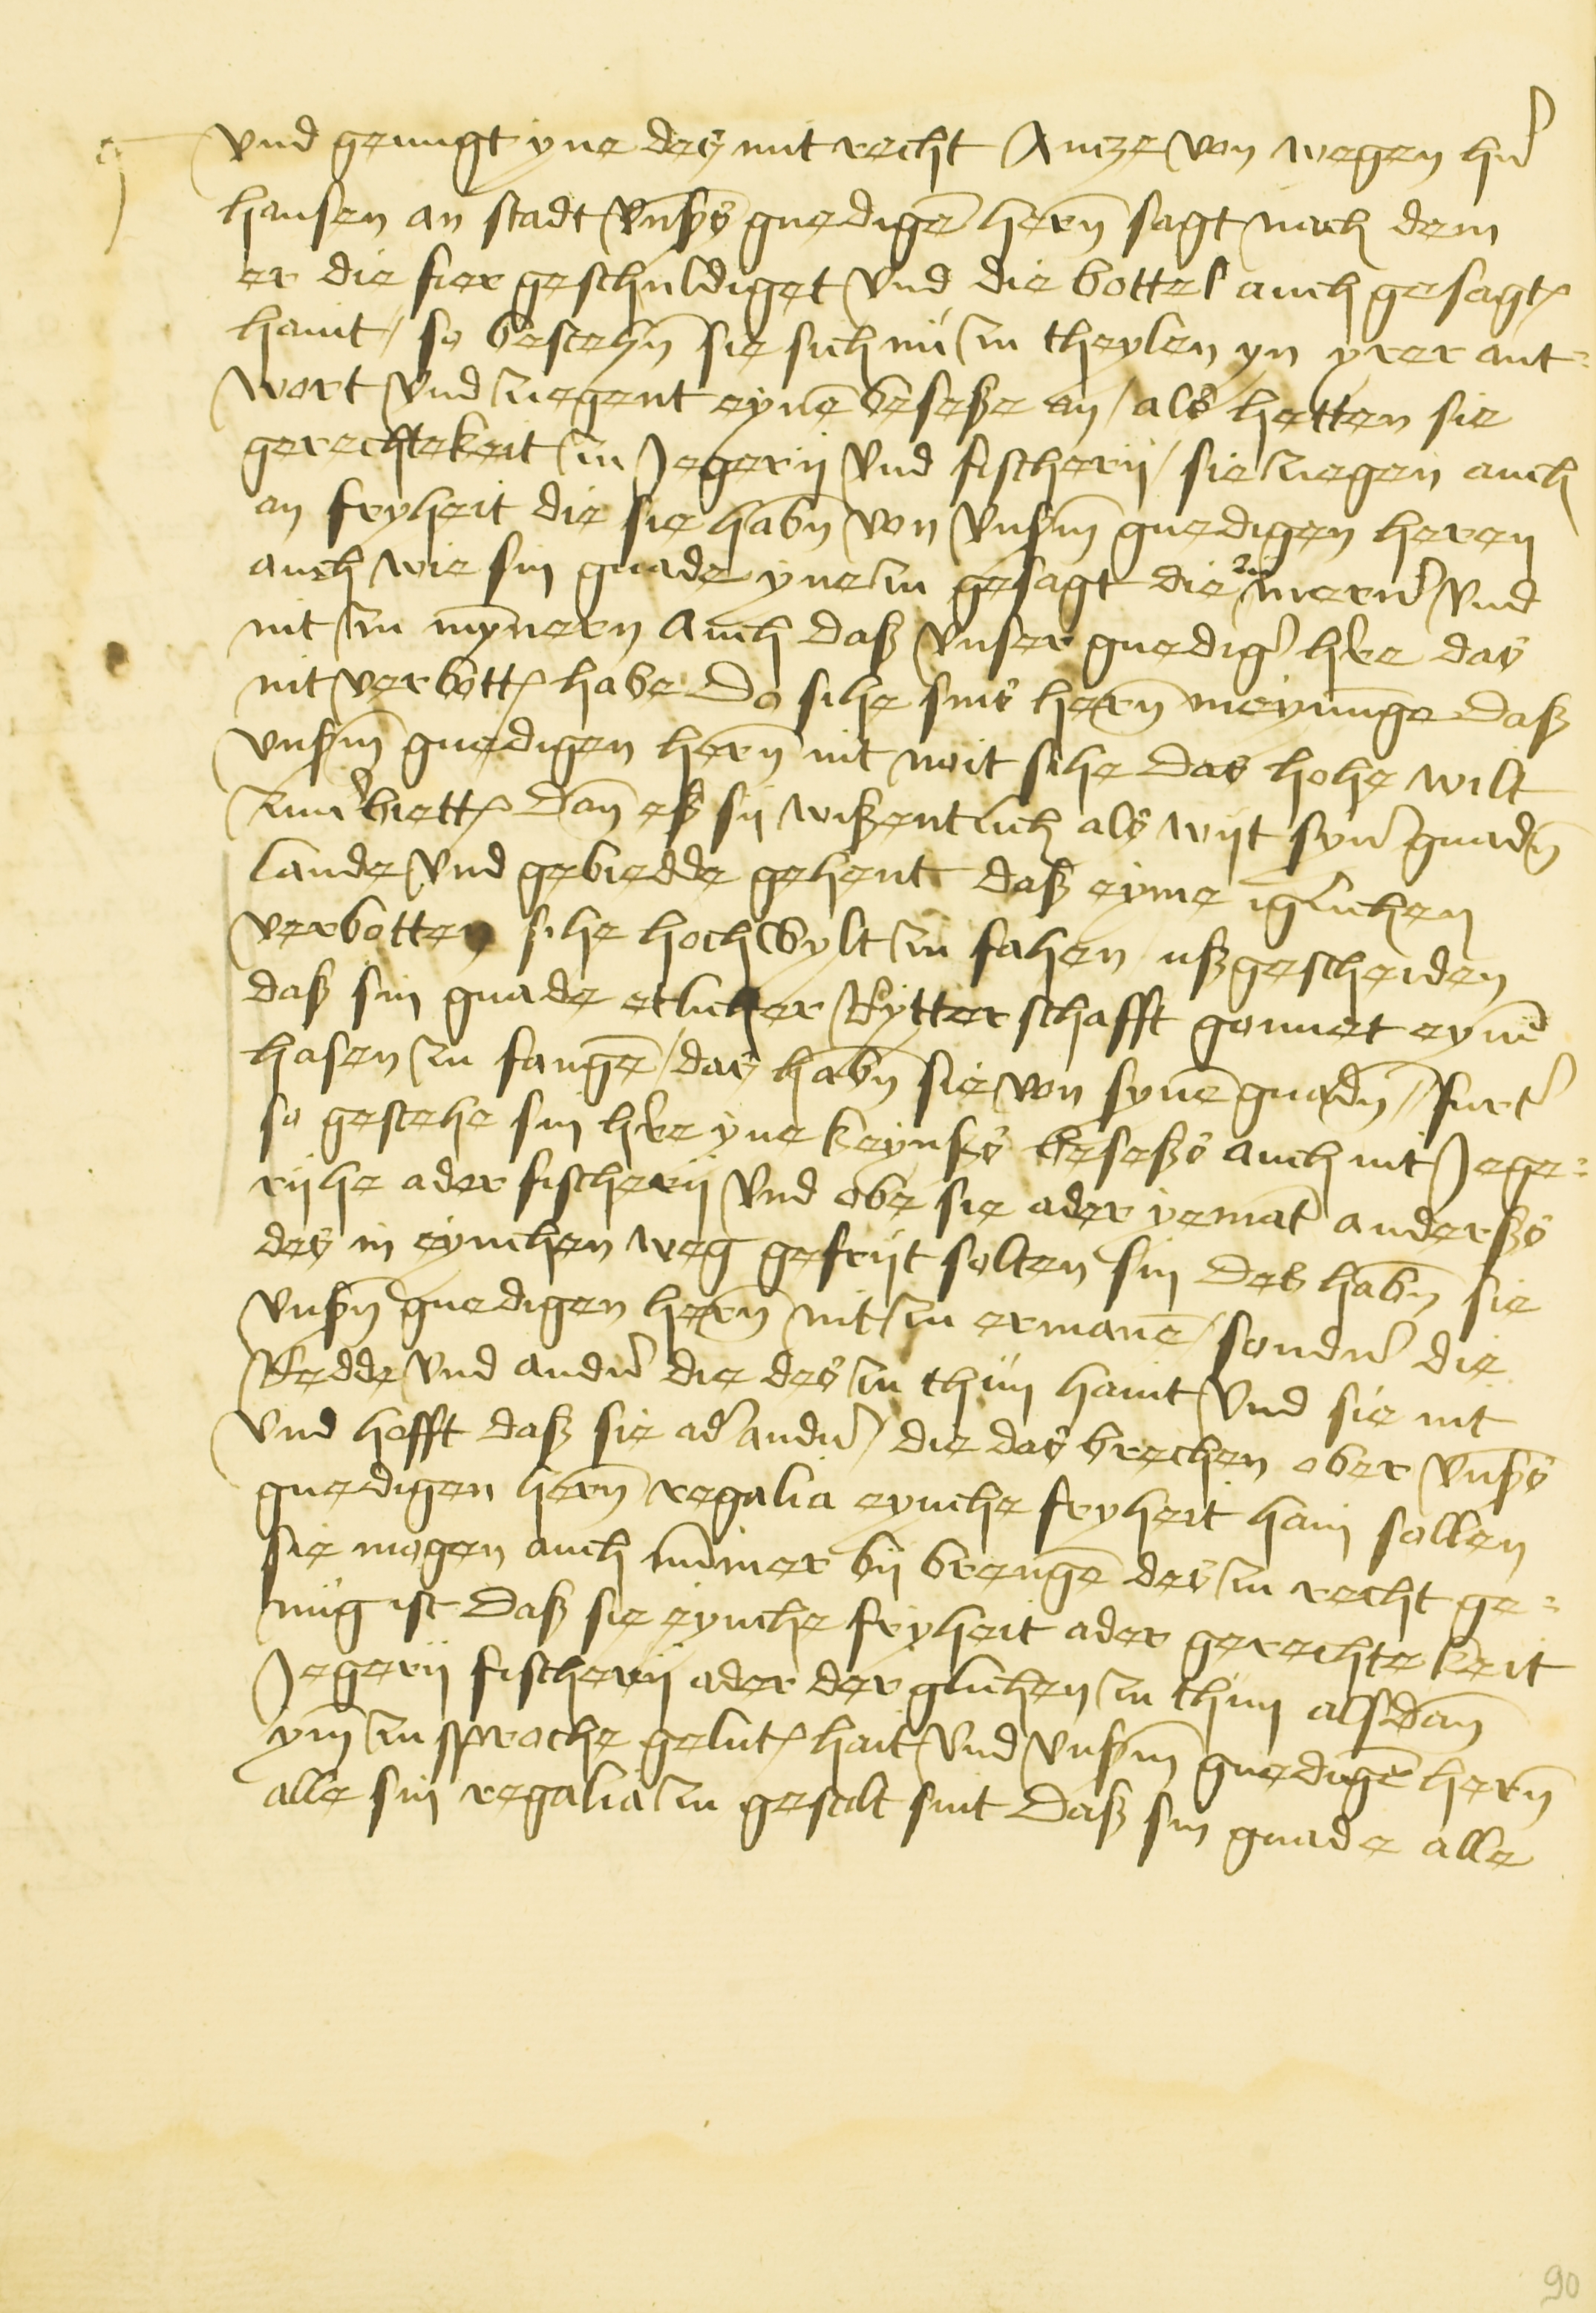 vnd genugt yne des mit recht Antze von wegen her
hansen an stadt vnsers gnedigen hern sagt nach dem
er die fier geschuldiget vnd die bottel auch gesagt
haint / so besteyn sie sich nu zu theylen yn yrer ant-
wort vnd ziegent eynen besesße an / als hetten sie
gerechtekeit zu Jegerij vnd fischerij / sie ziegen auch
an fryheit die sie habn von vnserm gnedigen heren
auch wie sin gnade yne zu gesagt die zu meren vnd
nit zu mynnern Auch daß vnser gnediger here das
nit verbotten habe Do sihe sins hern meynunge daß
vnserm gnedigen hern nit noit sihe das hohe wilt
zuverbietten Dan eß sij wißentlich als wijt syner gnadn
lande vnd gebiedde gehent daß eyme iglichen
verbotten sihe hoch wylt zu fahen / ußgescheiden
daß sin gnade etlicher Rytterschafft gonnet eynen
hasen zu fangen / das habn sie von synen gnadn / furter
so gestehe sin here yne keynßs beseßs auch nit Jege-
rijhe ader fischerij vnd obe sie ader yemant anderßs
des in eynchen weg gefrijt solten sin Des habn sie
vnsern gnedigen hern nit zu ermanen / sondern die
Redde vnd ander die des zu thun haint vnd sie nit
vnd hofft daß sie ader ander / die das brechen ober vnsers
gnedigen hern regalia eynche fryheit hain sollen
sie mogen auch nummer bij brengen des zu recht ge-
nug ist Daß sie eynche fryheit ader gerechtekeit
Jegerij fischerij ader der glichen zu thun alsdan
ym zu sproche gelut hait vnd vnserm gnedigen hern
alle sin regalia zu gestalt sint Daß sin gnade alle
90